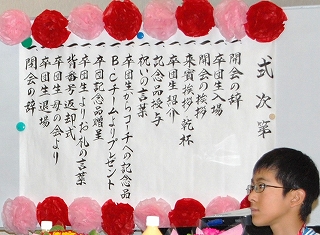 式次第
一 開会の辞
一 卒団生入場
一 開会の挨拶
一 来賓挨拶・乾杯
一 卒団生紹介
一 記念品授与
一 祝いの言葉
一 卒団生からコーチへの記念品
一 BCチームよりプレゼント
一 卒団記念品贈呈
一 卒団生よりお礼の言葉
一 背番号返却式
一 卒団生母の会より
一 卒団生退場
一 閉会の辞